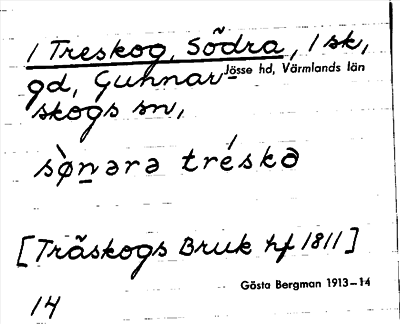 1 Treskog, Södra, 1 sk,
gd, Gunnar-
Jösse hd, Värmlands län
skogs sn,
sø̀n̲ərə tréskə
[Träskogs Bruk hf 1811]
Gösta Bergman 1913–14
14